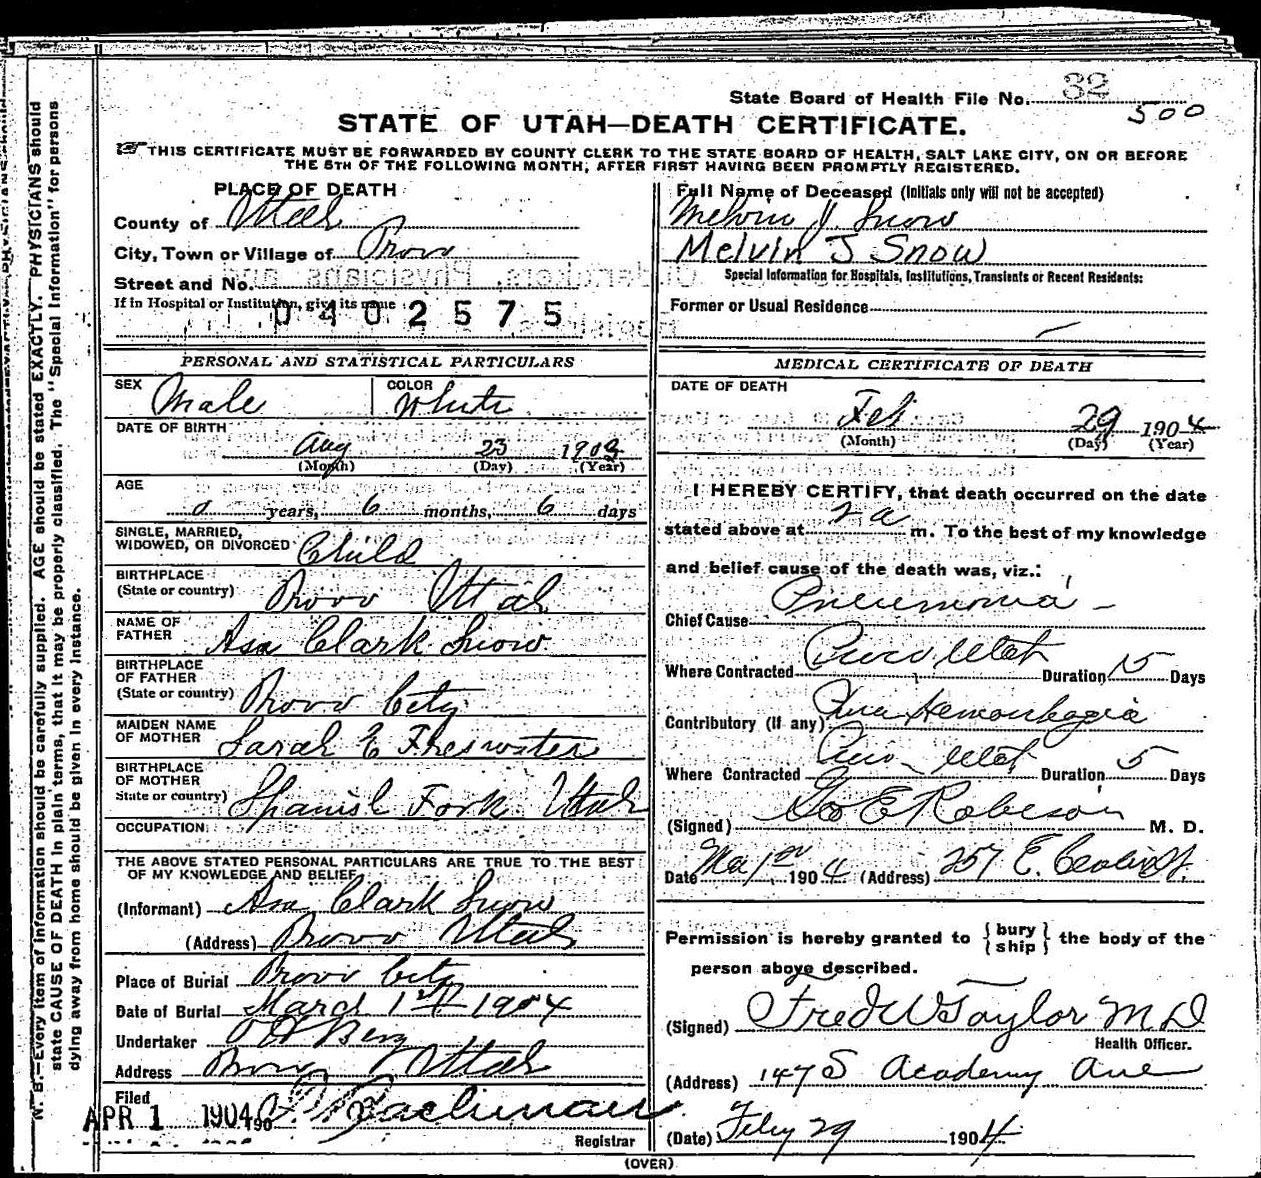 State Board of Health File No. 32
500
STATE OF UTAH—DEATH CERTIFICATE.
THIS CERTIFICATE MUST BE FORWARDED BY COUNTY CLERK TO THE STATE BOARD OF HEALTH, SALT LAKE CITY, ON OR BEFORE
THE 5TH OF THE FOLLOWING MONTH, AFTER FIRST HAVING BEEN PROMPTLY REGISTERED.
PLACE OF DEATH
County of Utah
City, Town or Village of Provo
Street and No.
If in Hospital or Institution, give its name
0402575
Full Name of Deceased (Initials only will not be accepted)
Melvin J. Snow
Melvin J Snow
Special Information for Hospitals, Institutions, Transients or Recent Residents:
Former or Usual Residence
PERSONAL AND STATISTICAL PARTICULARS
SEX Male
COLOR White
DATE OF BIRTH
Aug 23 1903
(Month) (Day) (Year)
AGE
0 years, 6 months, 6 days
SINGLE, MARRIED,
WIDOWED, OR DIVORCED Child
BIRTHPLACE
(State or country) Provo Utah
NAME OF
FATHER Asa Clark Snow
BIRTHPLACE
OF FATHER
(State or country) Provo City
MAIDEN NAME
OF MOTHER Sarah E
BIRTHPLACE
OF MOTHER
State or country) Spanish Fork Utah
OCCUPATION
THE ABOVE STATED PERSONAL PARTICULARS ARE TRUE TO THE BEST
OF MY KNOWLEDGE AND BELIEF
(Informant) Asa Clark Snow
(Address) Provo Utah
Place of Burial Provo City
Date of Burial March 1st 1904
Undertaker O H Berg
Address Provo Utah
Filed
APR 1 1904
Registrar
MEDICAL CERTIFICATE OF DEATH
DATE OF DEATH
Feb 29 1904
(Month) (Day) (Year)
I HEREBY CERTIFY, that death occurred on the date
stated above at 2 a m. To the best of my knowledge
and belief cause of the death was, viz.:
Chief Cause Pneumonia
Where Contracted Provo Utah Duration 15 Days
Contributory (if any)
Where Contracted Provo Utah Duration 5 Days
(Signed) Geo E Robison M. D.
Date Mar 1st 1904 (Address) 257 E. Center St.
Permission is hereby granted to {bury
ship} the body of the
person above described.
(Signed) Fred W Taylor M D
Health Officer.
(Address) 147 S Academy Ave
(Date) Feby 29 1904
(OVER)
N. B.—Every item of information should be carefully supplied. AGE should be stated EXACTLY. PHYSICIANS should
state CAUSE OF DEATH in plain terms, that it may be properly classified. The "Special Information" for persons
dying away from home should be given in every instance.